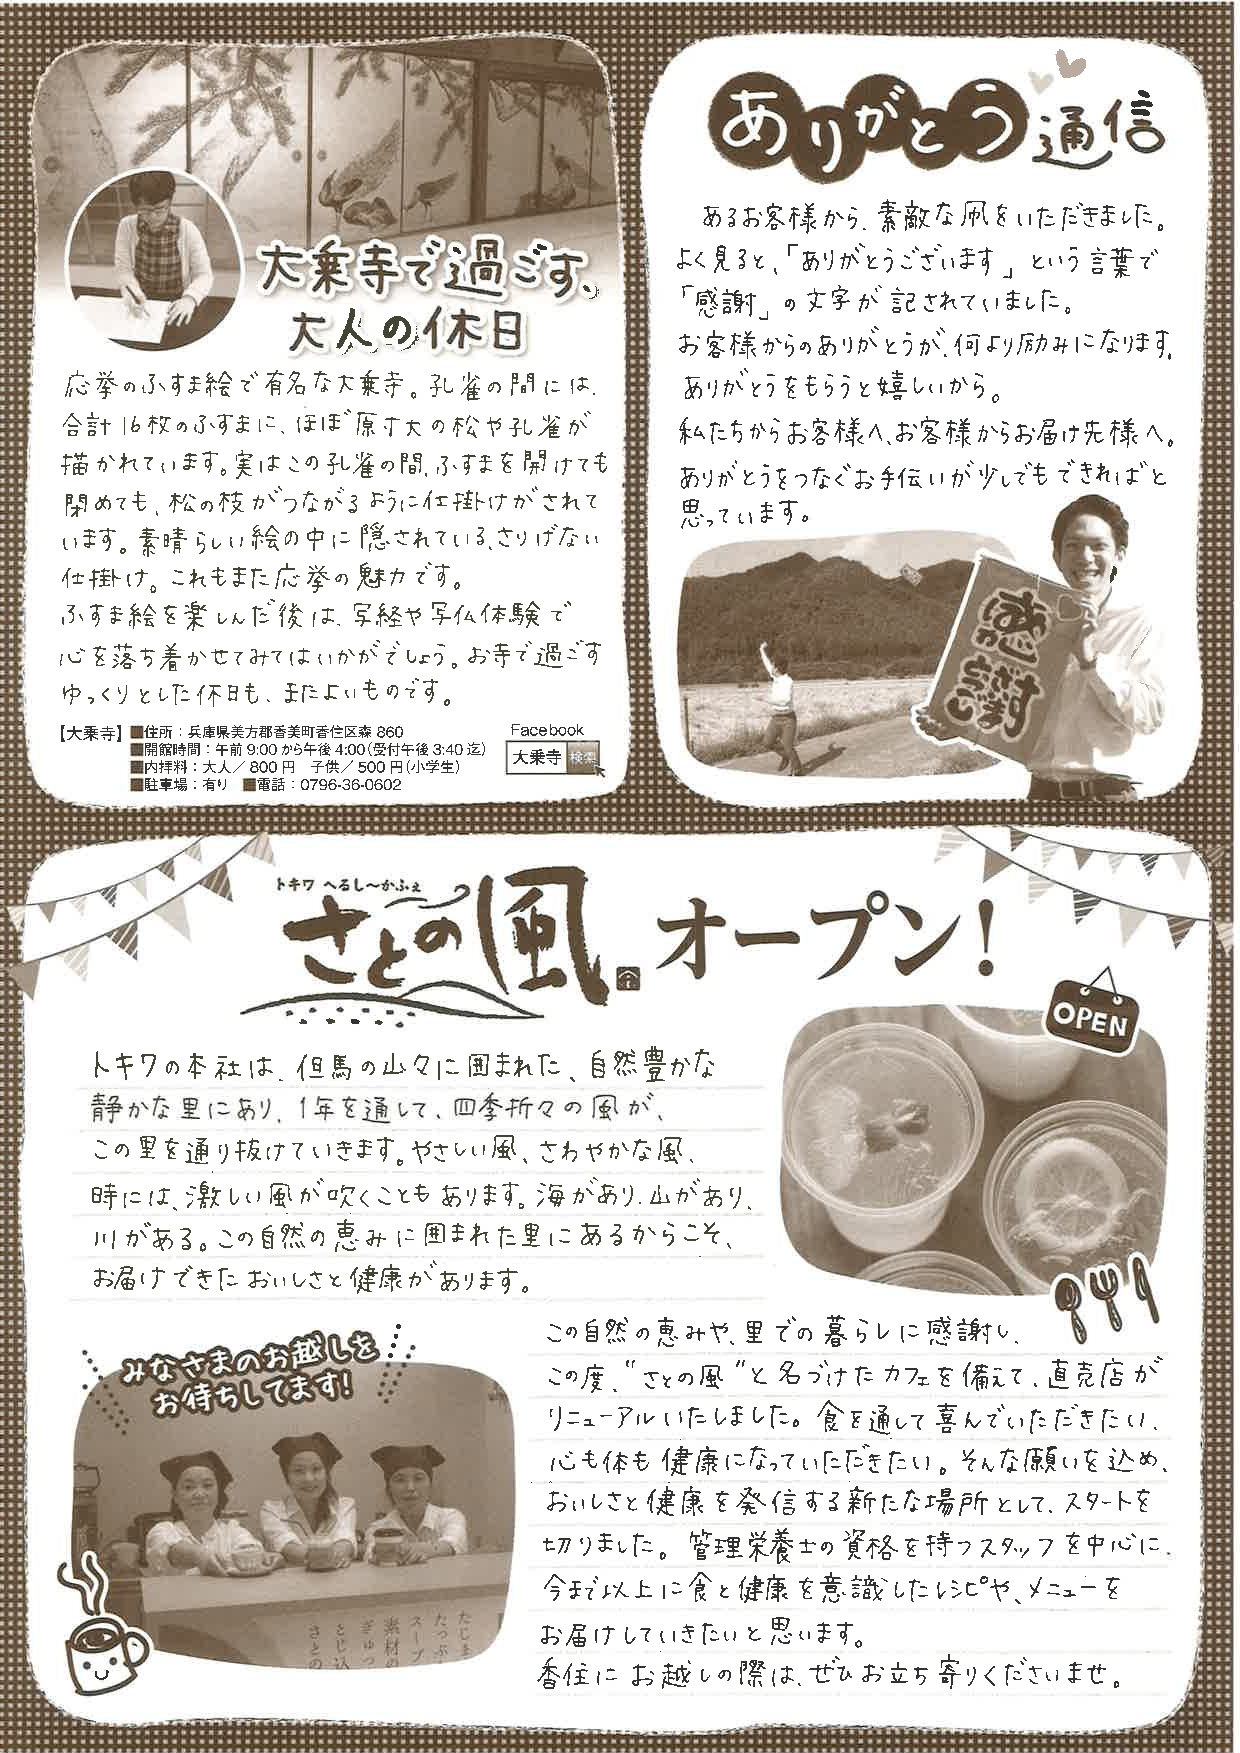 大乗寺で過ごす、
大人の休日
応挙のふすま絵で有名な大乗寺。孔雀の間には、
合計16枚のふすまに、ほぼ原寸大の松や孔雀が
描かれています。実はこの孔雀の間、ふすまを開けても
閉めても、松の枝がつながるように仕掛けがされて
います。素晴らしい絵の中に隠されている、さりげない
仕掛け。これもまた応挙の魅力です。
ふすま絵を楽しんだ後は、写経や写仏体験で
心を落ち着かせてみてはいかがでしょう。お寺で過ごす
ゆっくりとした休日も、またよいものです。
【大乗寺】■住所：兵庫県美方郡香美町香住区森 860
■開館時間：午前 9:00 から午後 4:00（受付午後 3:40 迄）
■内拝料：大人／ 800 円　子供／ 500 円（小学生）
■駐車場：有り　■電話：0796-36-0602
Facebook
大乗寺 検索
ありがとう通信
あるお客様から、素敵な凧をいただきました。
よく見ると、「ありがとうございます」という言葉で
「感謝」の文字が記されていました。
お客様からのありがとうが、何より励みになります。
ありがとうをもらうと嬉しいから。
私たちからお客様へ、お客様からお届け先様へ。
ありがとうをつなぐお手伝いが少しでもできればと
思っています。
トキワ へるし〜かふぇ
さとの風 オープン！
OPEN
トキワの本社は、但馬の山々に囲まれた、自然豊かな
静かな里にあり、1年を通して、四季折々の風が、
この里を通り抜けていきます。やさしい風、さわやかな風、
時には、激しい風が吹くこともあります。海があり、山があり、
川がある。この自然の恵みに囲まれた里にあるからこそ、
お届けできたおいしさと健康があります。
みなさまのお越しを
お待ちしてます!
この自然の恵みや、里での暮らしに感謝し、
この度、“さとの風”と名づけたカフェを備えて、直売店が
リニューアルいたしました。食を通して喜んでいただきたい、
心も体も健康になっていただきたい。そんな願いを込め、
おいしさと健康を発信する新たな場所として、スタートを
切りました。管理栄養士の資格を持つスタッフを中心に、
今まで以上に食と健康を意識したレシピや、メニューを
お届けしていきたいと思います。
香住にお越しの際は、ぜひお立ち寄りくださいませ。
たじま
たっぷ
スープ
素材の
ぎゅっ
とじ込
さとの